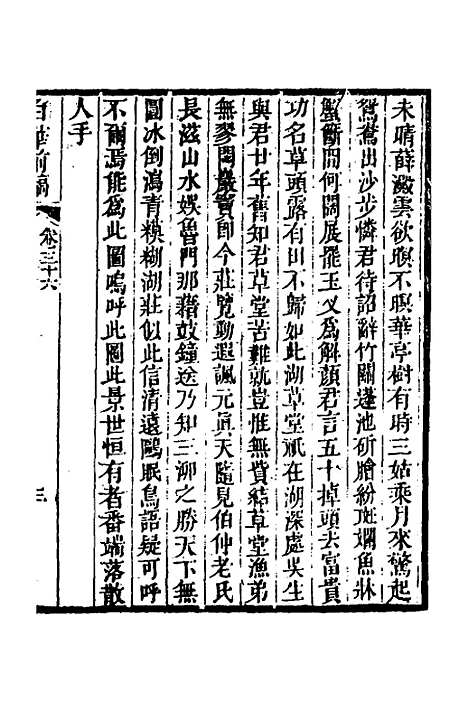 未晴薛澱雲欲暝不暝華亭樹有時三姑乘月來驚起
鴛鴦出沙步憐君待詔辭竹關蓬池斫膾紛斑斕魚牀
蟹斷間何闊展罷玉义為解顏君言五十掉頭去富貴
功名草頭露有田不歸如此湖草堂祇在湖深處吳生
與君廿年舊知君草堂苦難就豈惟無貲結草堂漁弟
無寥閟巖竇即今莊覽動遐諷元真天隨見伯仲老氏
長滋山水娛魯門那藉鼓鐘送乃知三泖之勝天下無
圖冰倒瀉青糢糊湖莊似此信清遠鷗眠鳥語疑可呼
不爾焉能為此圖嗚呼此圖此景世恒有者番端落散
人手
白華前稿
卷三十六
三